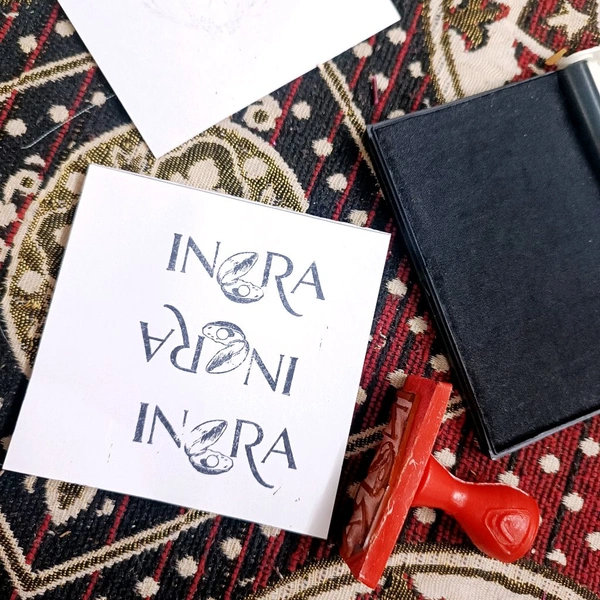 INRA
INRA
INRA